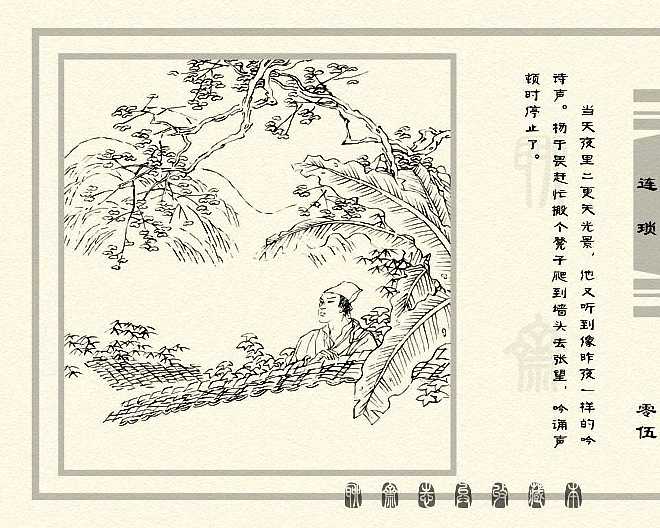 当天夜里二更天光景，他又听到像昨夜一样的吟
诗声。杨于畏赶忙搬个凳子爬到墙头去张望，吟诵声
顿时停止了。
连琐
零伍
聊斋志异收藏本